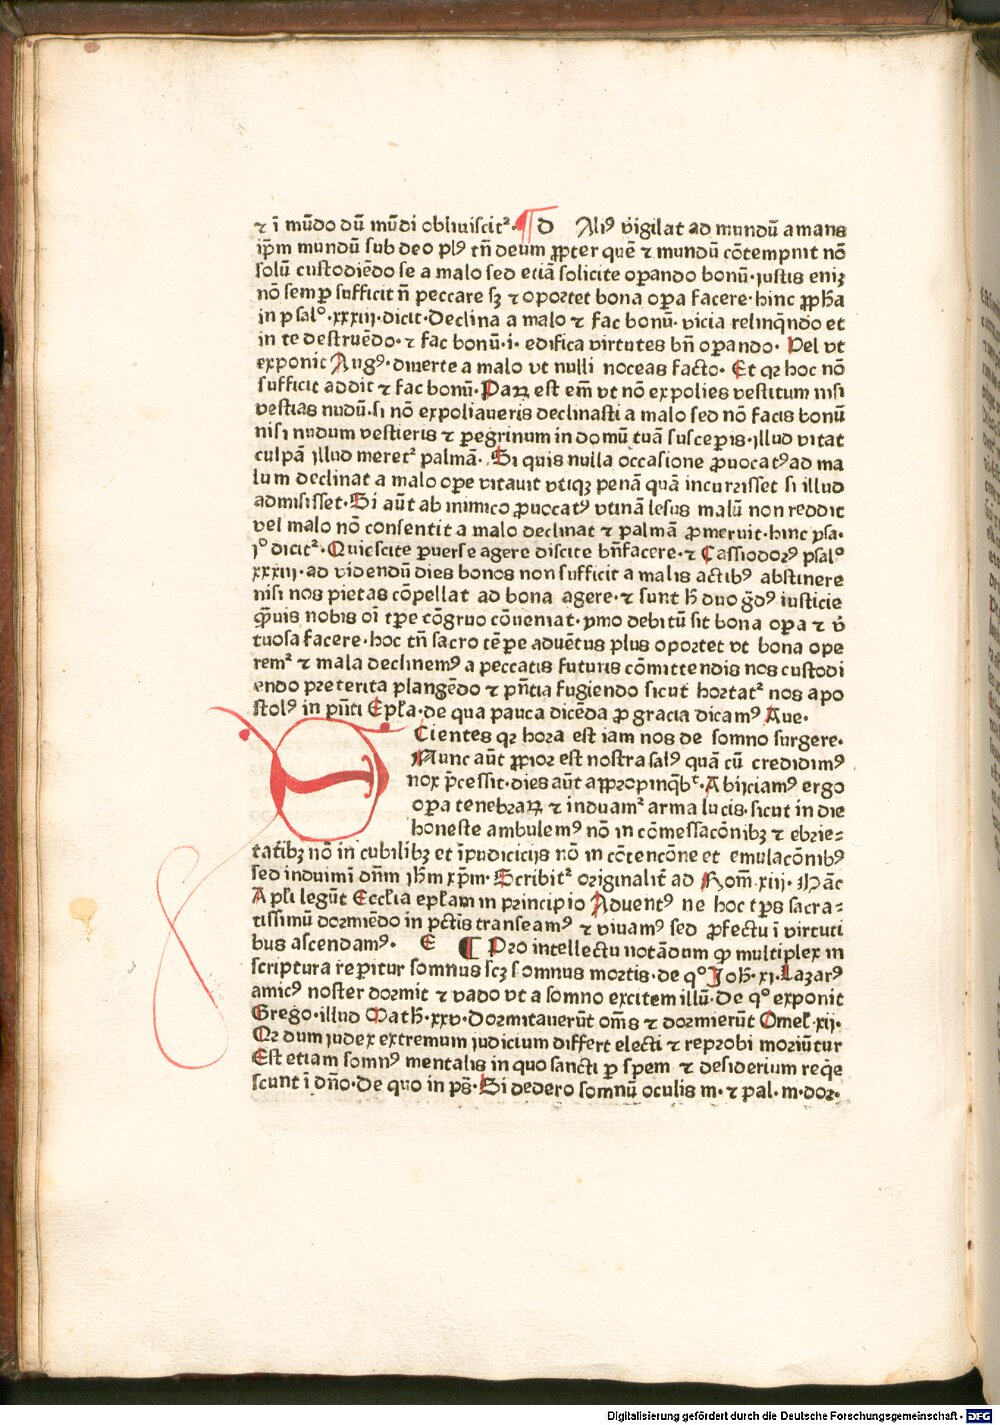 ⁊ ī mūdo dū mūdi obliuiscitᷣ. ¶ D Aliꝰ v̄igilat ad mundū amans
ip̄m mundū sub deo plꝰ tn̄ deum ꝓpter quē ⁊ mundū cōtempnit nō
solū custodiēdo se a malo sed etiā solicite oꝑando bonū. iustis eniʒ
nō semꝑ sufficit n̄ peccare sʒ ⁊ oportet bona oꝑa facere. hinc ꝓph̄a
in psalº. xxxiij. dicit. Declina a malo ⁊ fac bonū. vicia relinq̄ndo et
in te destruēdo. ⁊ fac bonū. i. edifica virtutes bn̄ oꝑando. Vel vt
exponit Augꝰ. diuerte a malo vt nulli noceas facto. Et qꝛ hoc nō
sufficit addit ⁊ fac bonū. Paꝝ est em̄ vt nō expolies vestitum nisi
vestias nudū. si nō expoliaueris declinasti a malo sed nō facis bonū
nisi nudum vestieris ⁊ ꝑegrinum in domū tuā susceperis. illud vitat
culpā illud meretᷣ palmā. Si quis nulla occasione ꝓuocatꝰ ad ma
lum declinat a malo oꝑe vitauit vtiqʒ penā quā incurrisset si illud
admisisset. Si aūt ab inimico ꝓuocatꝰ vtinā lesus malū non reddit
vel malo nō consentit a malo declinat ⁊ palmā ꝓmeruit. hinc ysa.
iº dicitᷣ. Quiescite ꝑuerse agere discite bn̄facere. ⁊ Cassiodorꝰ psalº
xxxiij. ad videndū dies bonos non sufficit a malis actibꝰ abstinere
nisi nos pietas cōpellat ad bona agere. ⁊ sunt h̄ duo ḡdꝰ iusticie
q̄uis nobis oī tꝑe cōgruo cōueniat. ymo debitū sit bona oꝑa ⁊ v̄
tuosa facere. hoc tn̄ sacro tēꝑe aduētus plus oportet vt bona ope
remᷣ ⁊ mala declinemꝰ a peccatis futuris cōmittendis nos custodi
endo preterita plangēdo ⁊ pn̄tia fugiendo sicut hortatᷣ nos apo
stolꝰ in pn̄ti Epƚa. de qua pauca dicēda ꝓ gracia dicamꝰ Aue.
S Cientes qꝛ hora est iam nos de somno surgere.
Nunc aūt ꝓpior est nostra salꝰ quā cū credidimꝰ
nox p̄cessit. dies aūt appropinq̄bᵗ. Abijciamꝰ ergo
oꝑa tenebraꝝ ⁊ induamᷣ arma lucis. sicut in die
honeste ambulemꝰ nō in cōmessacōnibʒ ⁊ ebrie=
tatibʒ nō in cubilibʒ et īpudicicijs nō in cōtencōne et emulacōnibꝰ
sed induimī dn̄m jh̄m xp̄m. Scribitᷣ originalit̄ ad Rom̄. xiij. Hāc
Apƚi legūt Eccƚia epƚam in principio Aduentꝰ ne hoc tp̄s sacra=
tissimū dormiēdo in pct̄is transeamꝰ ⁊ viuamꝰ sed ꝓfectu ī virtuti
bus ascendamꝰ. E ¶ Pro intellectu notādum ꝙ multiplex in
scriptura reꝑitur somnus scʒ somnus mortis. de qº Joh̄. xj. Lazarꝰ
amicꝰ noster dormit ⁊ vado vt a somno excitem illū. De qº exponit
Grego. illud Math̄. xxv. Dormitauerūt om̄s ⁊ dormierūt Omeƚ. xij.
Qꝛ dum iudex extremum iudicium differt electi ⁊ reprobi moriūtur
Est etiam somnꝰ mentalis in quo sancti ꝑ spem ⁊ desiderium req̄e
scunt ī dn̄o. De quo in ps̄. Si dedero somnū oculis m. ⁊ pal. m. dor.
Digitalisierung gefördert durch die Deutsche Forschungsgemeinschaft - DFG